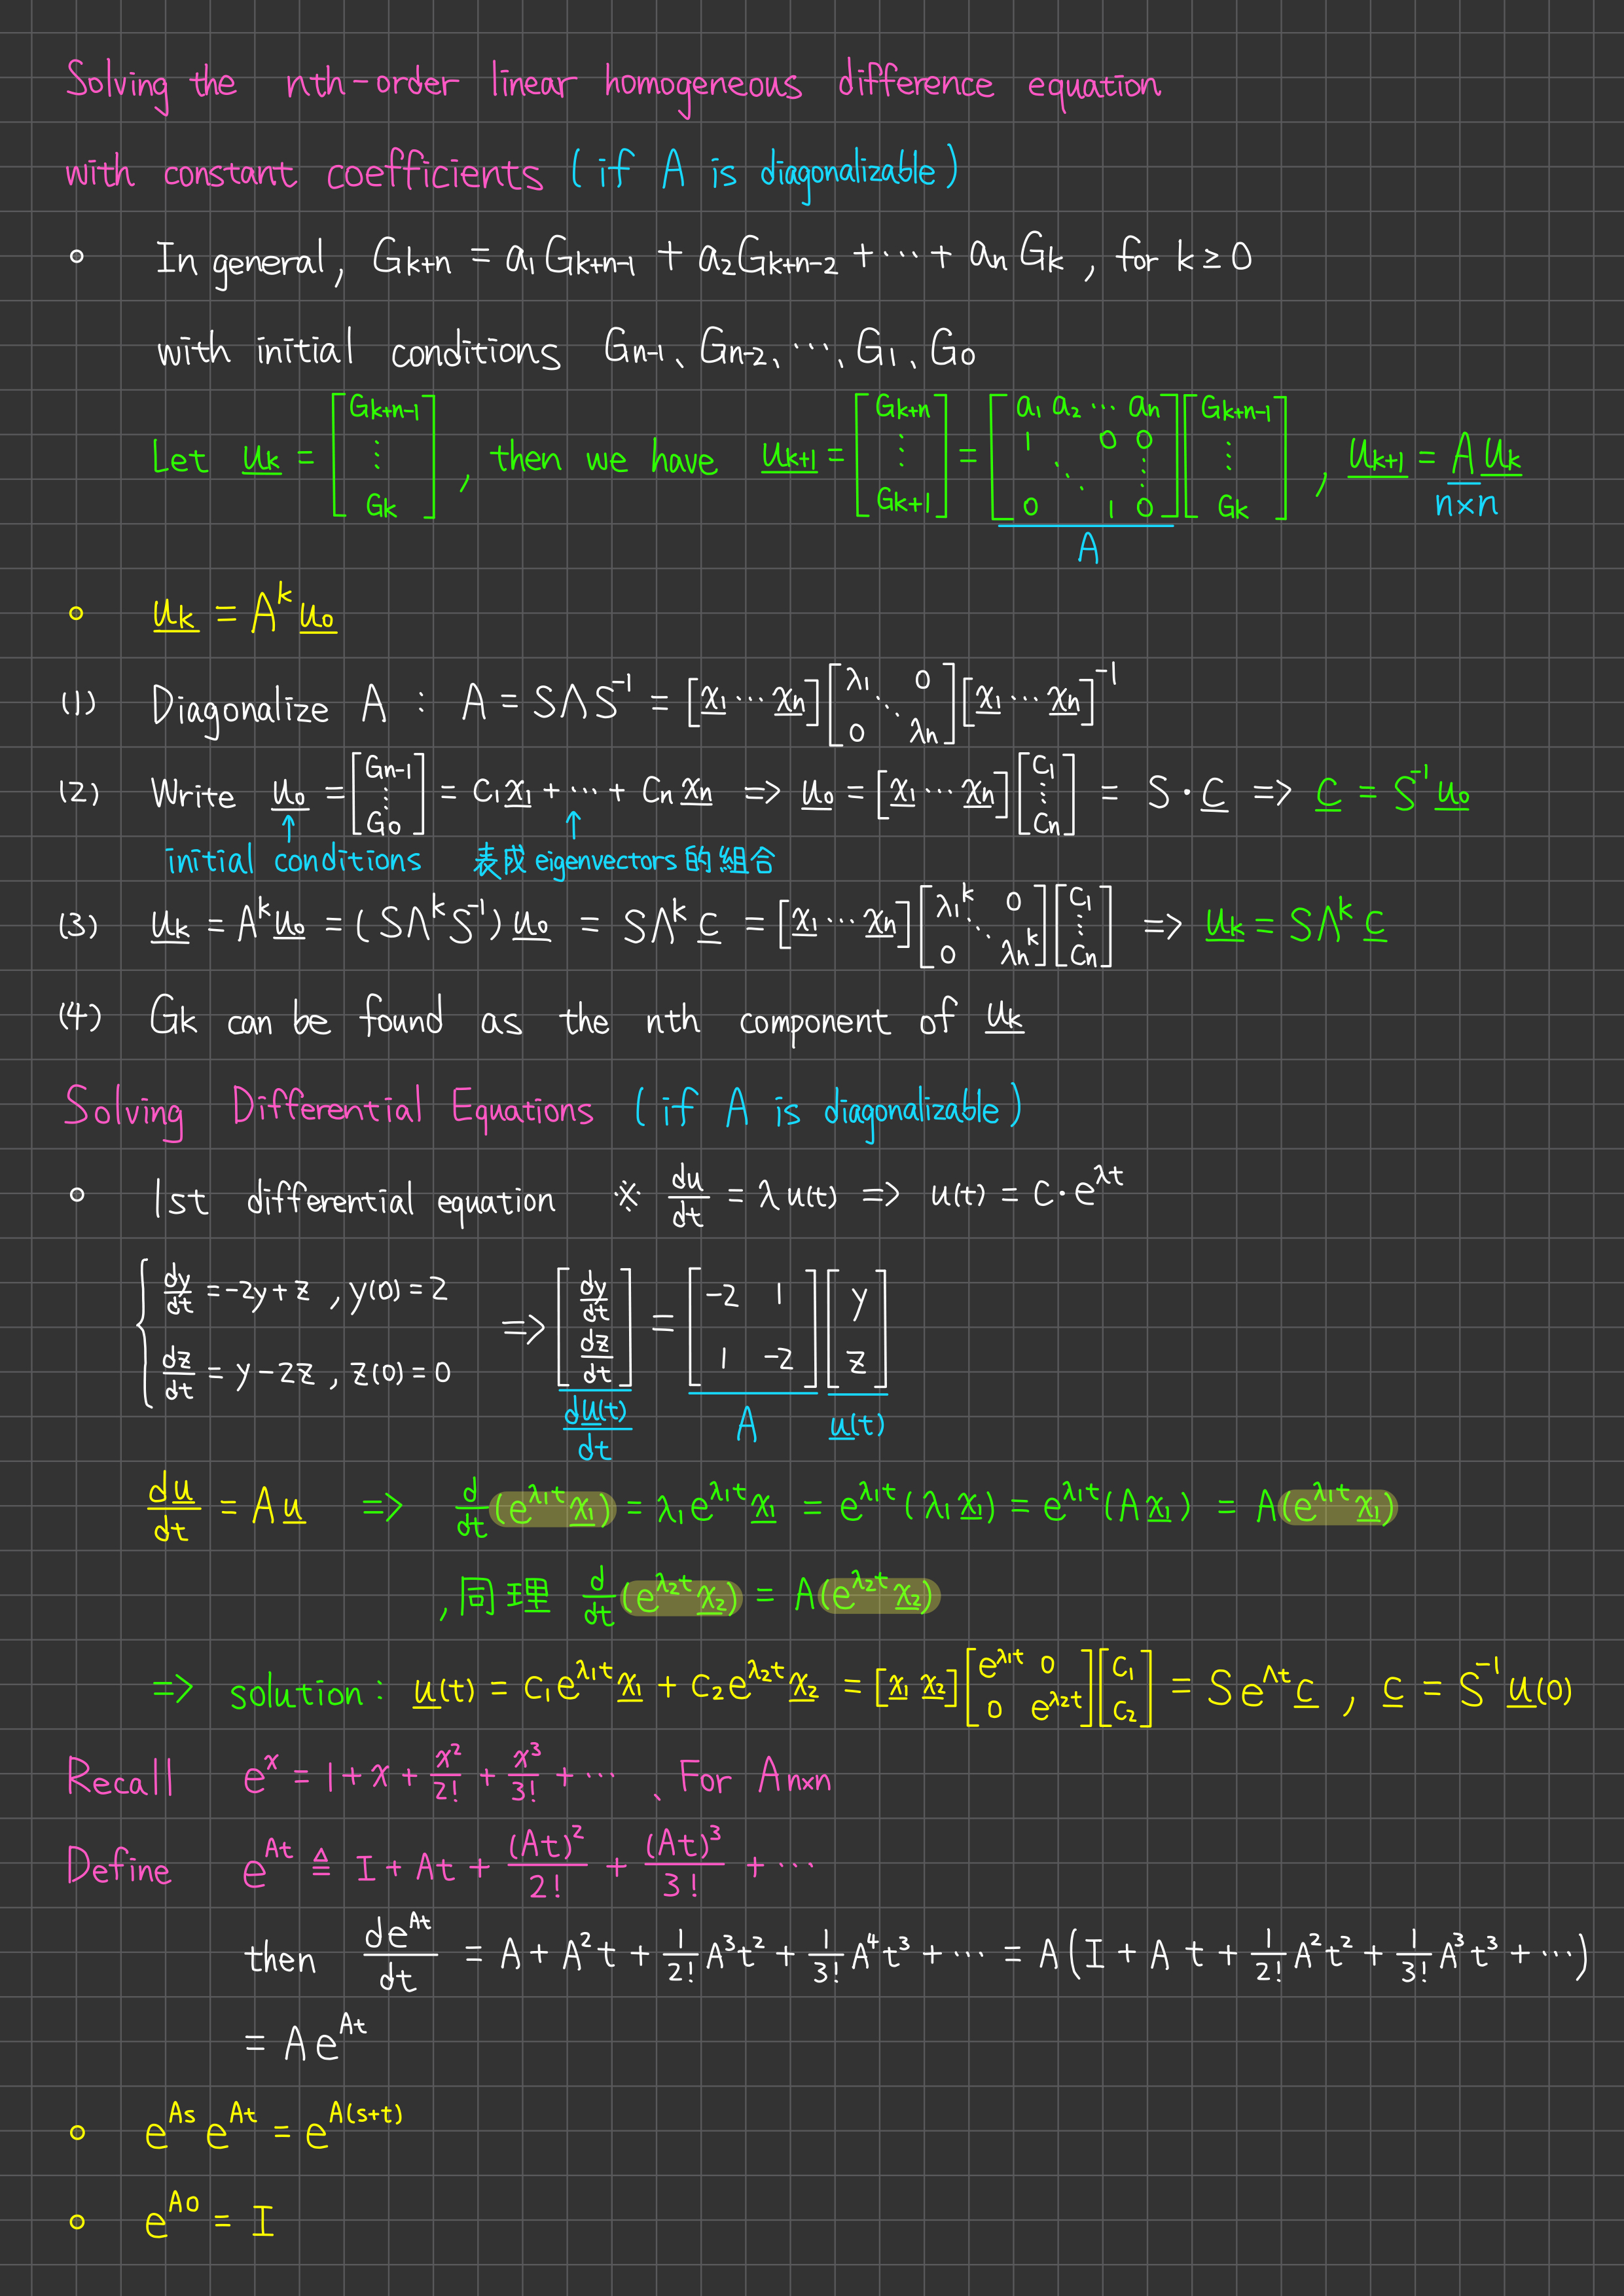 Solving the nth-order linear homogeneous difference equation
with constant coefficients (if A is diagonalizable)
◦ In general, G_{k+n} = a_1 G_{k+n-1} + a_2 G_{k+n-2} + ⋯ + a_n G_k , for k ≥ 0
with initial conditions G_{n-1}、G_{n-2}、⋯、G_1、G_0
Let u_k = [G_{k+n-1} ⋮ G_k] , then we have u_{k+1} = [G_{k+n} ⋮ G_{k+1}] = [a_1 a_2 ⋯ a_n ; 1 0 0 ; ⋱ ⋮ ; 0 1 0] [G_{k+n-1} ⋮ G_k] , u_{k+1} = A u_k
A n×n
◦ u_k = A^k u_0
(1) Diagonalize A : A = SΛS^{-1} = [x_1 ⋯ x_n] [λ_1 0 ; ⋱ ; 0 λ_n] [x_1 ⋯ x_n]^{-1}
(2) Write u_0 = [G_{n-1} ⋮ G_0] = c_1 x_1 + ⋯ + c_n x_n => u_0 = [x_1 ⋯ x_n] [c_1 ⋮ c_n] = S · c => c = S^{-1} u_0
↑ ↑
initial conditions 表成 eigenvectors 的組合
(3) u_k = A^k u_0 = (SΛ^k S^{-1}) u_0 = SΛ^k c = [x_1 ⋯ x_n] [λ_1^k 0 ; ⋱ ; 0 λ_n^k] [c_1 ⋮ c_n] => u_k = SΛ^k c
(4) G_k can be found as the nth component of u_k
Solving Differential Equations (if A is diagonalizable)
◦ 1st differential equation ※ du/dt = λ u(t) => u(t) = C · e^{λt}
{ dy/dt = -2y + z , y(0) = 2
dz/dt = y - 2z , z(0) = 0
=> [dy/dt ; dz/dt] = [-2 1 ; 1 -2] [y ; z]
du(t)/dt A u(t)
du/dt = A u => d/dt (e^{λ_1 t} x_1) = λ_1 e^{λ_1 t} x_1 = e^{λ_1 t} (λ_1 x_1) = e^{λ_1 t} (A x_1) = A (e^{λ_1 t} x_1)
, 同理 d/dt (e^{λ_2 t} x_2) = A (e^{λ_2 t} x_2)
=> solution : u(t) = c_1 e^{λ_1 t} x_1 + c_2 e^{λ_2 t} x_2 = [x_1 x_2] [e^{λ_1 t} 0 ; 0 e^{λ_2 t}] [c_1 ; c_2] = S e^{Λt} c , c = S^{-1} u(0)
Recall e^x = 1 + x + x^2/2! + x^3/3! + ⋯ 、For A_{n×n}
Define e^{At} ≜ I + At + (At)^2/2! + (At)^3/3! + ⋯
then de^{At}/dt = A + A^2 t + 1/2! A^3 t^2 + 1/3! A^4 t^3 + ⋯ = A (I + A t + 1/2! A^2 t^2 + 1/3! A^3 t^3 + ⋯)
= A e^{At}
◦ e^{As} e^{At} = e^{A(s+t)}
◦ e^{A0} = I